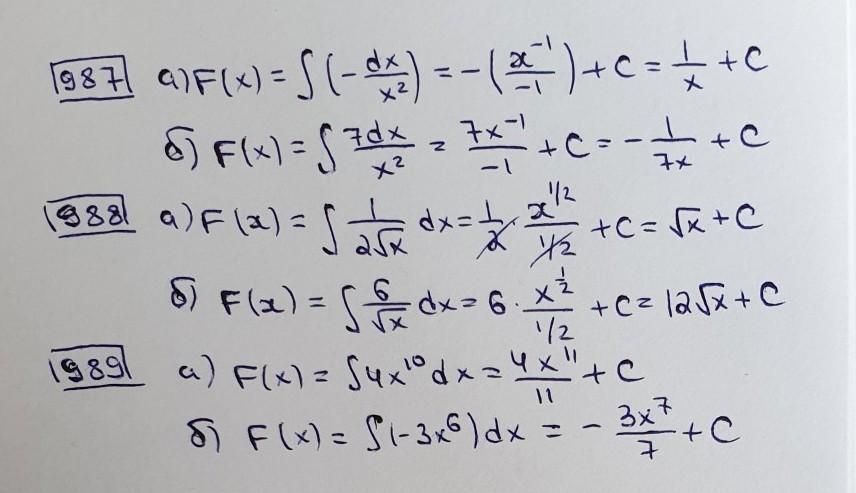 987 а) F(x) = ∫(-dx/x²) = -(x⁻¹/-1) + C = 1/x + C
б) F(x) = ∫ 7dx/x² = 7x⁻¹/-1 + C = - 1/7x + C
988 а) F(x) = ∫ 1/2√x dx = 1/2 · x^1/2 / 1/2 + C = √x + C
б) F(x) = ∫ 6/√x dx = 6 · x^1/2 / 1/2 + C = 12√x + C
989 а) F(x) = ∫4x¹⁰dx = 4x¹¹/11 + C
б) F(x) = ∫(-3x⁶)dx = - 3x⁷/7 + C